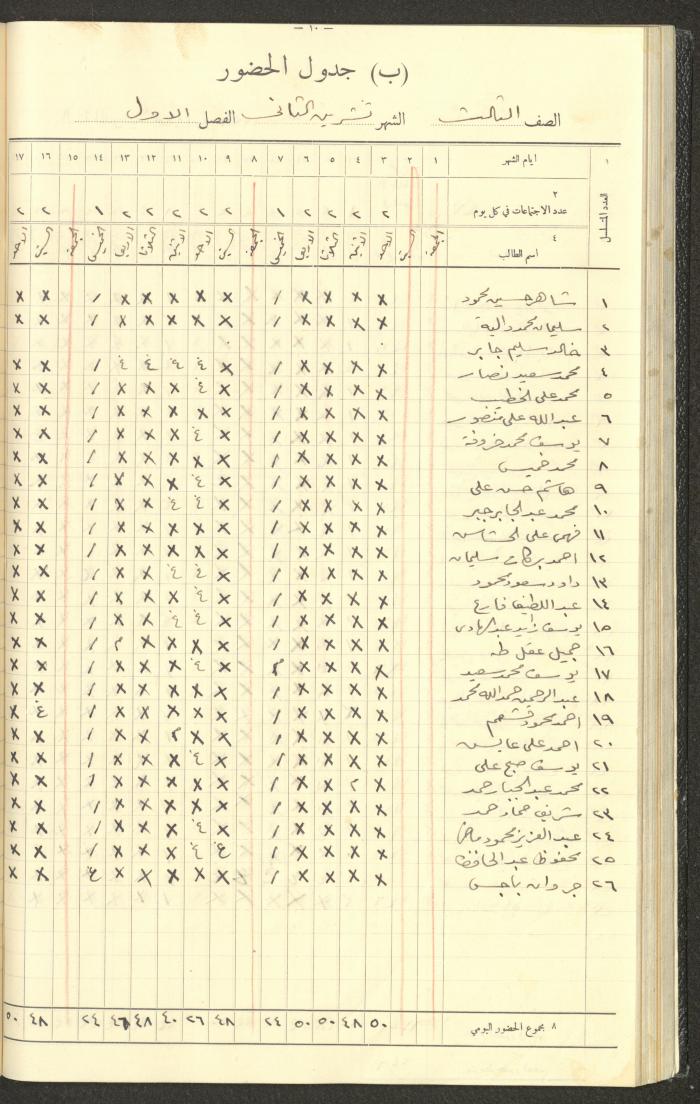 — ١٠ —
(ب) جدول الحضور
الصف الثالث الشهر تشرين الثاني الفصل الاول
١ ايام الشهر ١ ٢ ٣ ٤ ٥ ٦ ٧ ٨ ٩ ١٠ ١١ ١٢ ١٣ ١٤ ١٥ ١٦ ١٧
العدد المتسلسل
٢ عدد الاجتماعات في كل يوم ٢ ٢ ٢ ٢ ١ ٢ ٢ ٢ ٢ ٢ ١ ٢ ٢
٤ اسم الطالب الجمعة السبت الاحد الاثنين الثلاثا الاربعا الخميس الجمعة السبت الاحد الاثنين الثلاثا الاربعا الخميس الجمعة السبت الاحد
١ شاهر حسين محمود x x x x / x x x x x / x x
٢ سليمان محمد x x x x / x x x x x / x x
٣ خالد سليم جابر
٤ محمد سعيد نصار x x x x / x غ غ غ غ / x x
٥ محمد علي الخطيب x x x x / x غ x x x / x x
٦ عبد الله علي x x x x / x x x x x / x x
٧ يوسف محمد x x x x / x غ x x x / x x
٨ محمد خميس x x x x / x x x x x / x x
٩ هاشم حسن علي x x x x / x غ x x x / x x
١٠ محمد عبد الجابر جبر x x x x / x غ غ x x / x x
١١ فهمي علي x x x x / x x x x x / x x
١٢ احمد بركات سليمان x x x x / x x x x x / x x
١٣ داود سعود محمود x x x x / x غ غ x x / x x
١٤ عبد اللطيف فارع x x x x / x غ x x x / x x
١٥ يوسف زايد عبد الهادي x x x x / x غ غ x x / x x
١٦ جميل عقل طه x x x x / x x x x م / x x
١٧ يوسف محمد سعيد x x x x م x غ x x x / x x
١٨ عبد الرحمن حمد الله محمد x x x x / x x x x x / x x
١٩ احمد محمود x x x x / x x x x x / غ x
٢٠ احمد علي عايش x x x x / x x م x x / x x
٢١ يوسف صبح علي x x x x / x غ x x x / x x
٢٢ محمد عبد الجبار حمد x م x x / x x x x x / x x
٢٣ شريف حماد حمد x x x x / x x x x x / x x
٢٤ عبد العزيز محمود x x x x / x غ x x x / x x
٢٥ محفوظ عبد الحافظ x x x x / غ غ x x x / x x
٢٦ مروان باجس x x x x / x x x x x غ x x
٨ مجموع الحضور اليومي ٥٠ ٤٨ ٥٠ ٥٠ ٢٤ ٤٨ ٢٦ ٤٠ ٤٨ ٤٦ ٢٤ ٤٨ ٥٠